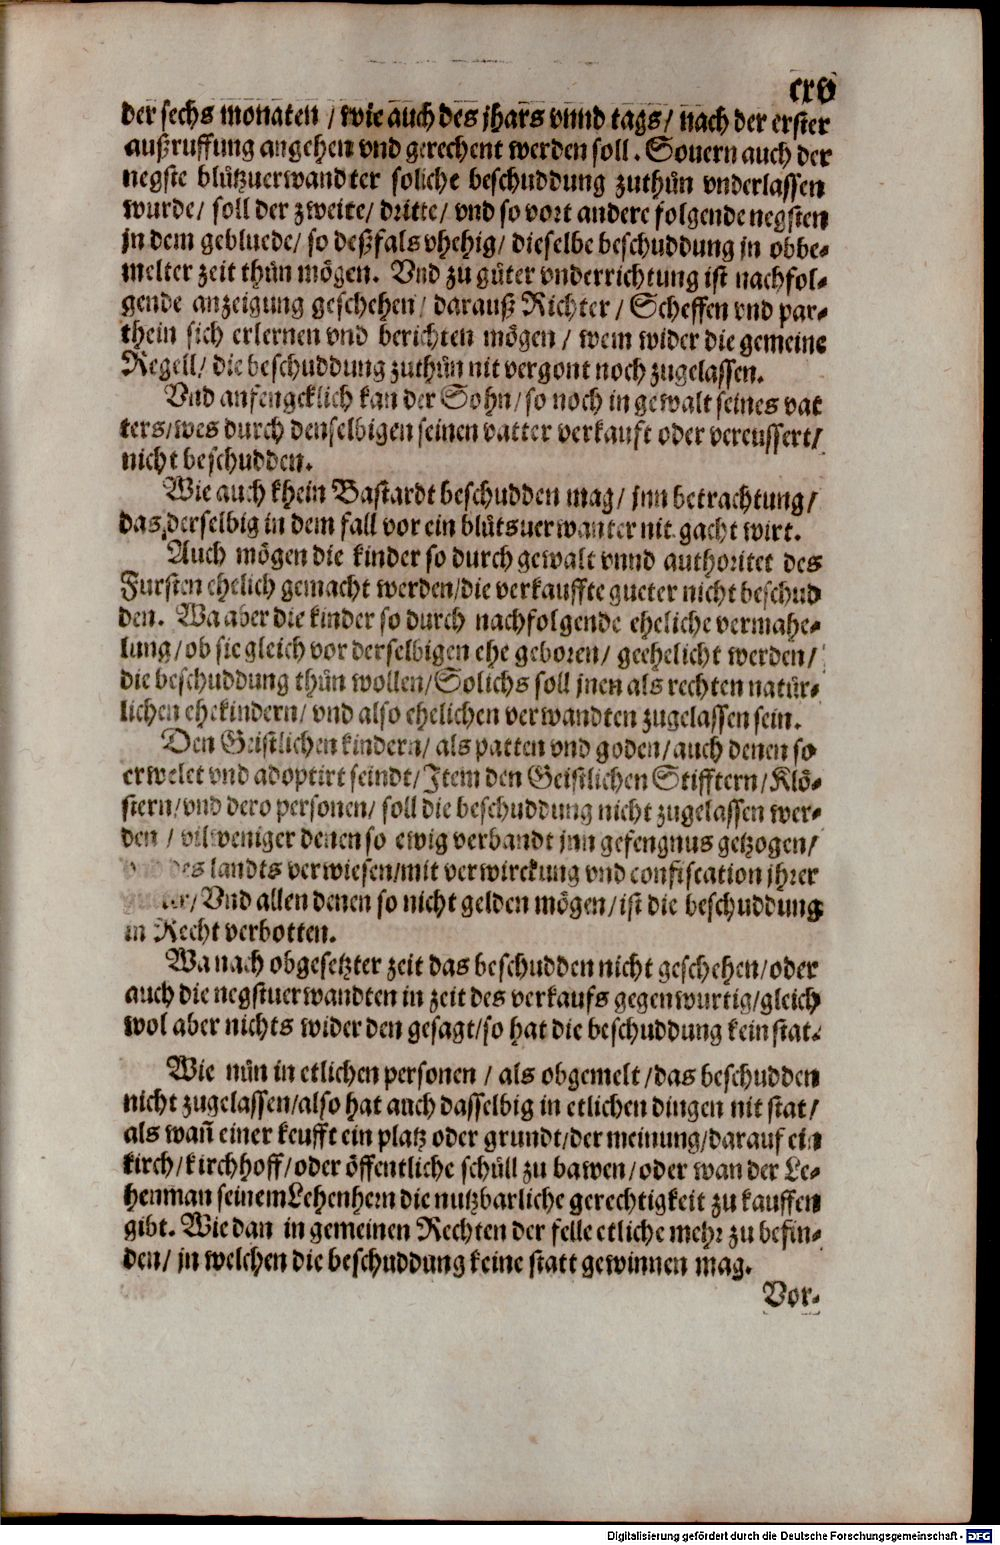 cxv
der sechs monaten / wie auch des jhars vnnd tags / nach der erster
außruffung angehen vnd gerechent werden soll. Souern auch der
negste blůtzuerwandter soliche beschuddung zuthůn vnderlassen
wurde / soll der zweite / dritte / vnd so vort andere folgende negsten
jn dem gebluede / so deßfals vhehig / dieselbe beschuddung jn obbe-
melter zeit thůn mögen. Vnd zu gůter vnderrichtung ist nachfol-
gende anzeigung geschehen / darauß Richter / Scheffen vnd par-
thein sich erlernen vnd berichten mögen / wem wider die gemeine
Regell / die beschuddung zuthůn nit vergont noch zugelassen.
Vnd anfengcklich kan der Sohn / so noch in gewalt seines vat
ters / wes durch denselbigen seinen vatter verkauft oder vereussert /
nicht beschudden.
Wie auch khein Bastardt beschudden mag / jnn betrachtung /
das derselbig in dem fall vor ein blůtsuerwanter nit gacht wirt.
Auch mögen die kinder so durch gewalt vnnd authoritet des
Fursten ehelich gemacht werden / die verkauffte gueter nicht beschud
den. Wa aber die kinder so durch nachfolgende eheliche vermahe-
lung / ob sie gleich vor derselbigen ehe geboren / geehelicht werden /
die beschuddung thůn wollen / Solichs soll jnen als rechten natůr-
lichen ehekindern / vnd also ehelichen verwandten zugelassen sein.
Den Geistlichen kindern / als patten vnd goden / auch denen so
erwelet vnd adoptirt seindt / Item den Geistlichen Stifftern / Klö-
stern / vnd dero personen / soll die beschuddung nicht zugelassen wer-
den / vil weniger denen so ewig verbandt jnn gefengnus getzogen /
des landts verwiesen / mit verwirckung vnd confiscation jhrer
/ Vnd allen denen so nicht gelden mögen / ist die beschuddung
in Recht verbotten.
Wa nach obgesetzter zeit das beschudden nicht geschehen / oder
auch die negstuerwandten in zeit des verkaufs gegenwurtig / gleich
wol aber nichts wider den gesagt / so hat die beschuddung kein stat.
Wie nůn in etlichen personen / als obgemelt / das beschudden
nicht zugelassen / also hat auch dasselbig in etlichen dingen nit stat /
als wan̄ einer keufft ein platz oder grundt / der meinung / darauf ein
kirch / kirchhoff / oder öffentliche schůll zu bawen / oder wan der Le-
henman seinem Lehenhern die nutzbarliche gerechtigkeit zu kauffen
gibt. Wie dan in gemeinen Rechten der felle etliche mehr zu befin-
den / jn welchen die beschuddung keine statt gewinnen mag.
Vor-
Digitalisierung gefördert durch die Deutsche Forschungsgemeinschaft - DFG